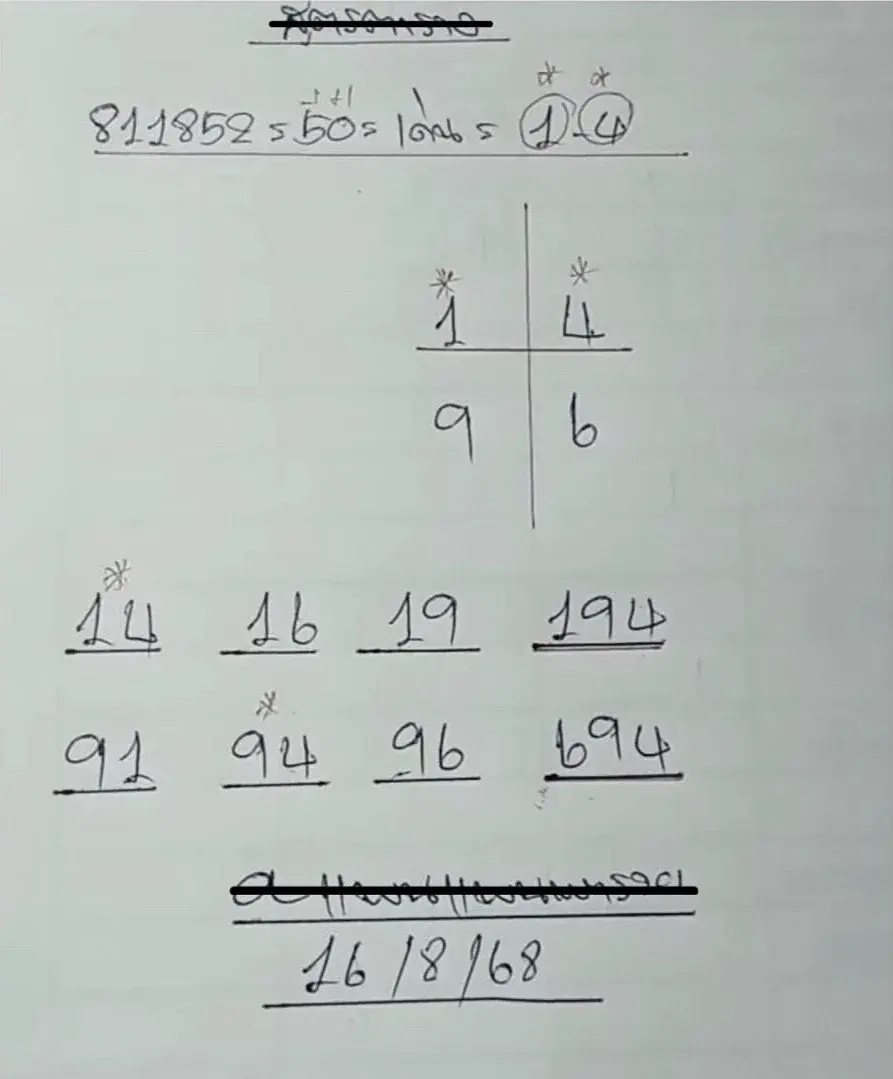 -1 +1
811852 = 50 = เด่น = 1-4
1 4
9 6
14 16 19 194
91 94 96 694
16/8/68